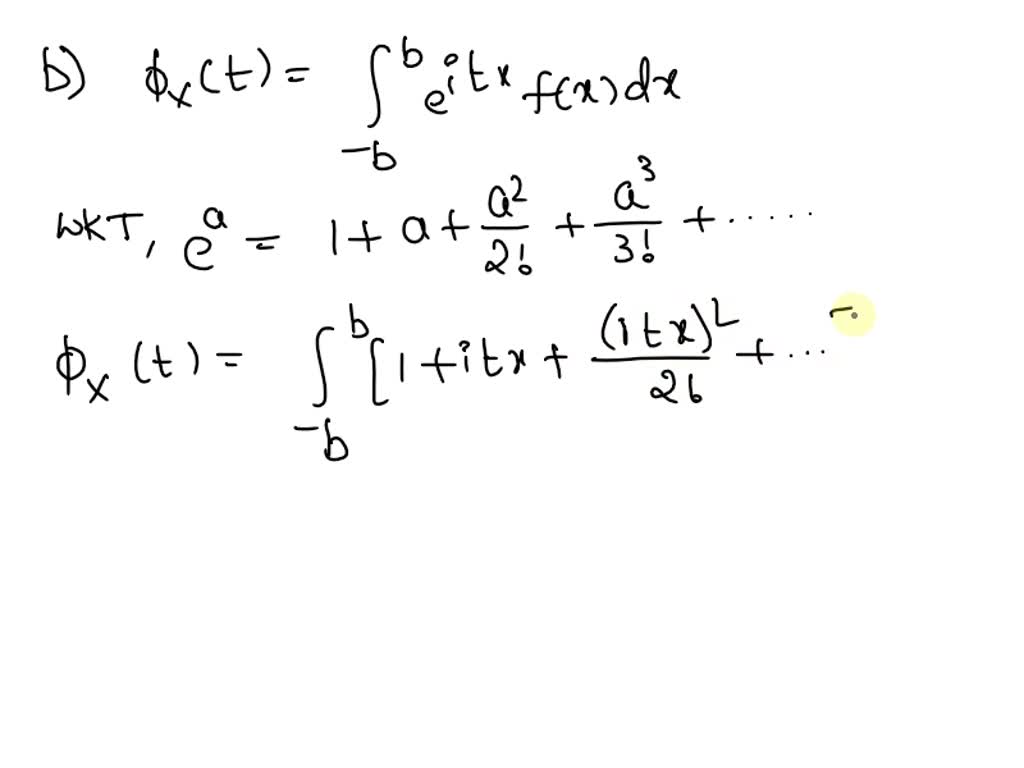 b) ϕ_X(t) = ∫_{-b}^{b} e^{itx} f(x) dx
WKT, e^a = 1 + a + a^2/2! + a^3/3! + ......
ϕ_X(t) = ∫_{-b}^{b} [1 + itx + (itx)^2/2! + ...